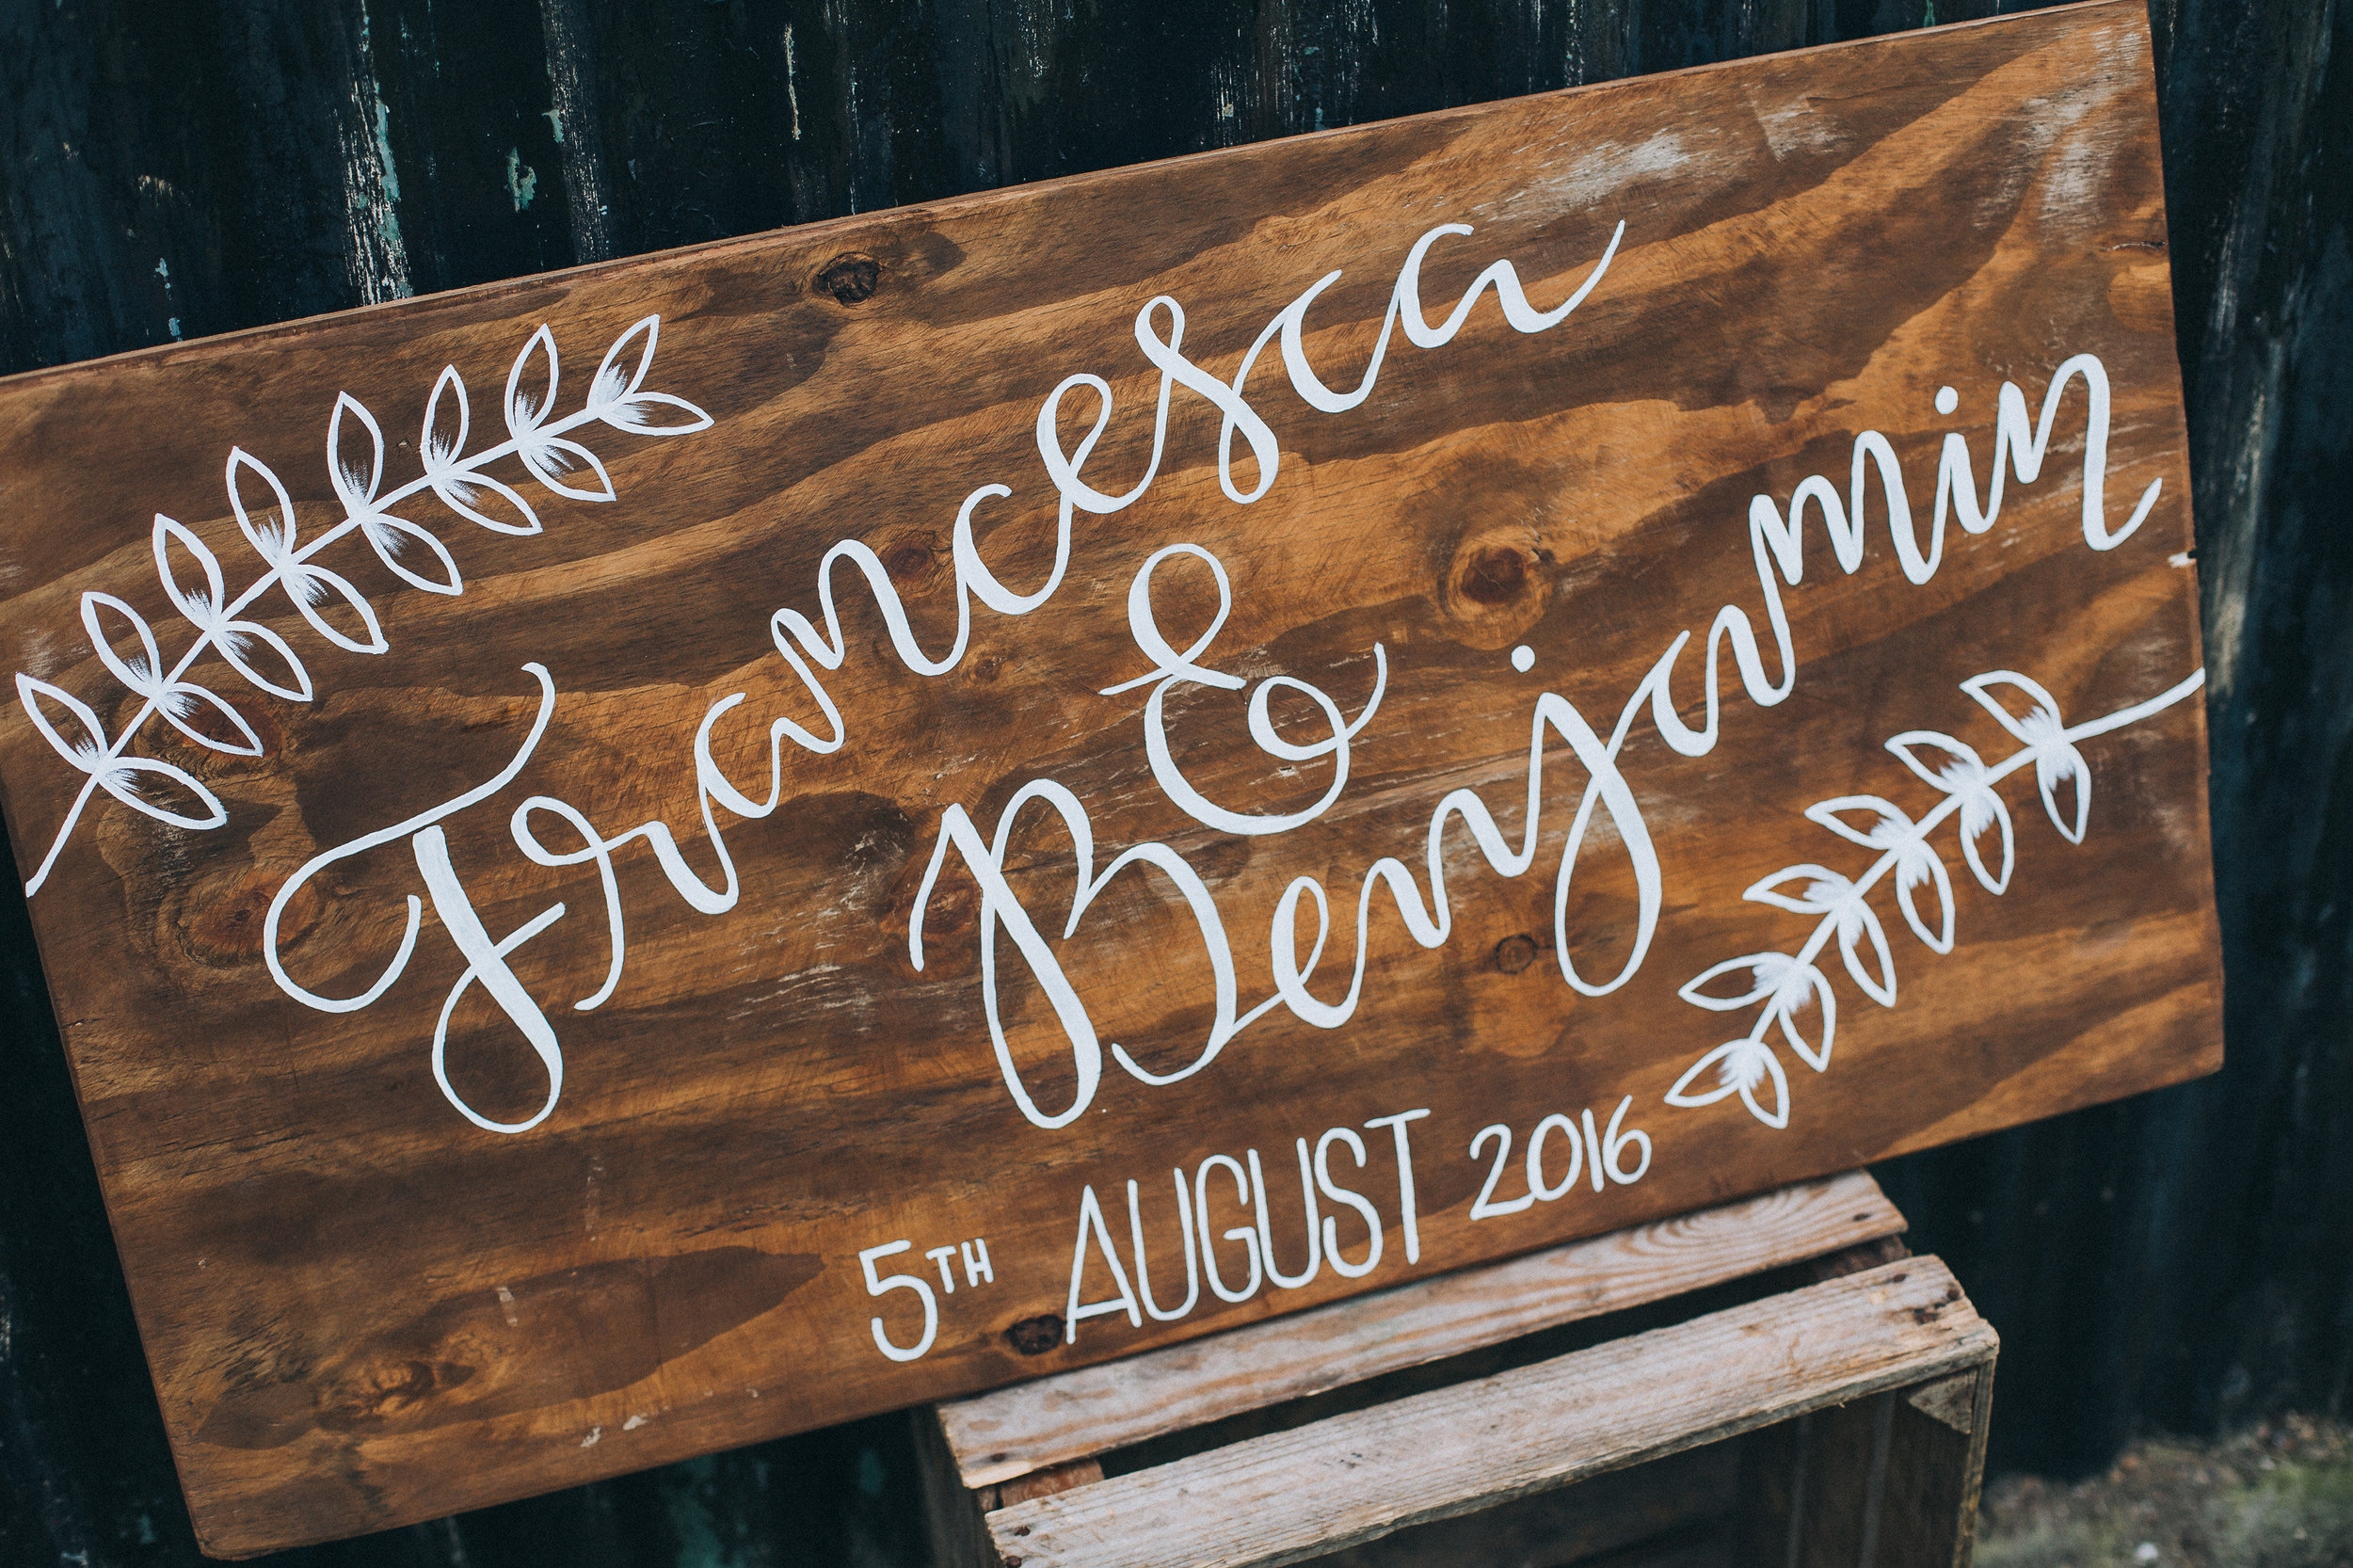 Francesca
&
Benjamin
5TH AUGUST 2016